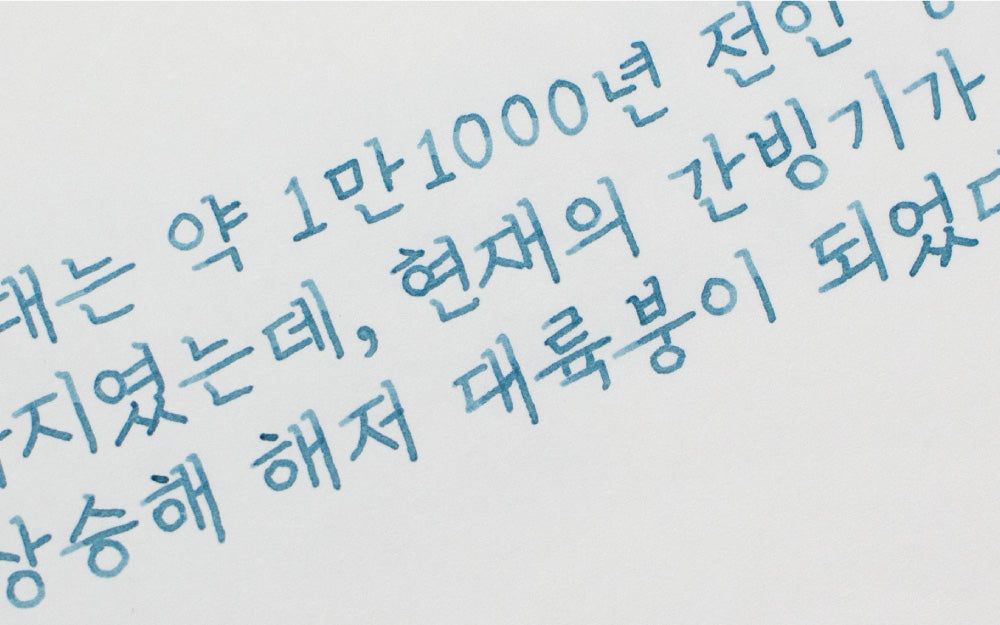 대는 약 1만1000년 전인
지였는데, 현재의 간빙기가
상승해 해저 대륙붕이 되었다